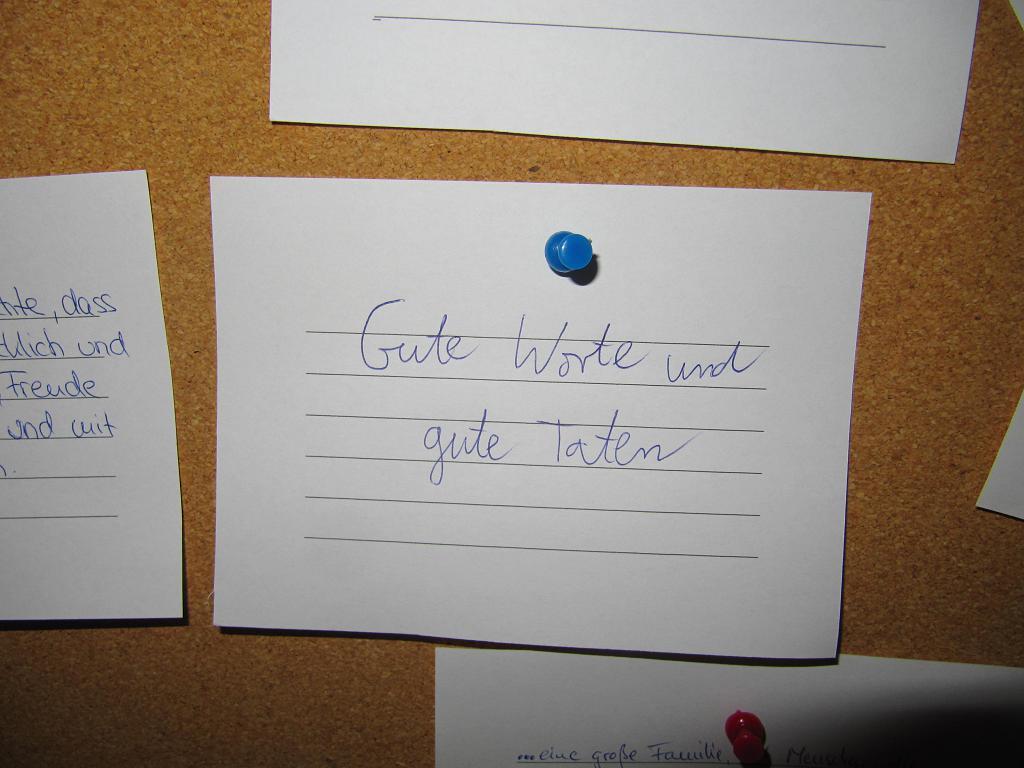 dass
und
Freude
und mit
Gute Worte und
gute Taten
...eine große Familie,